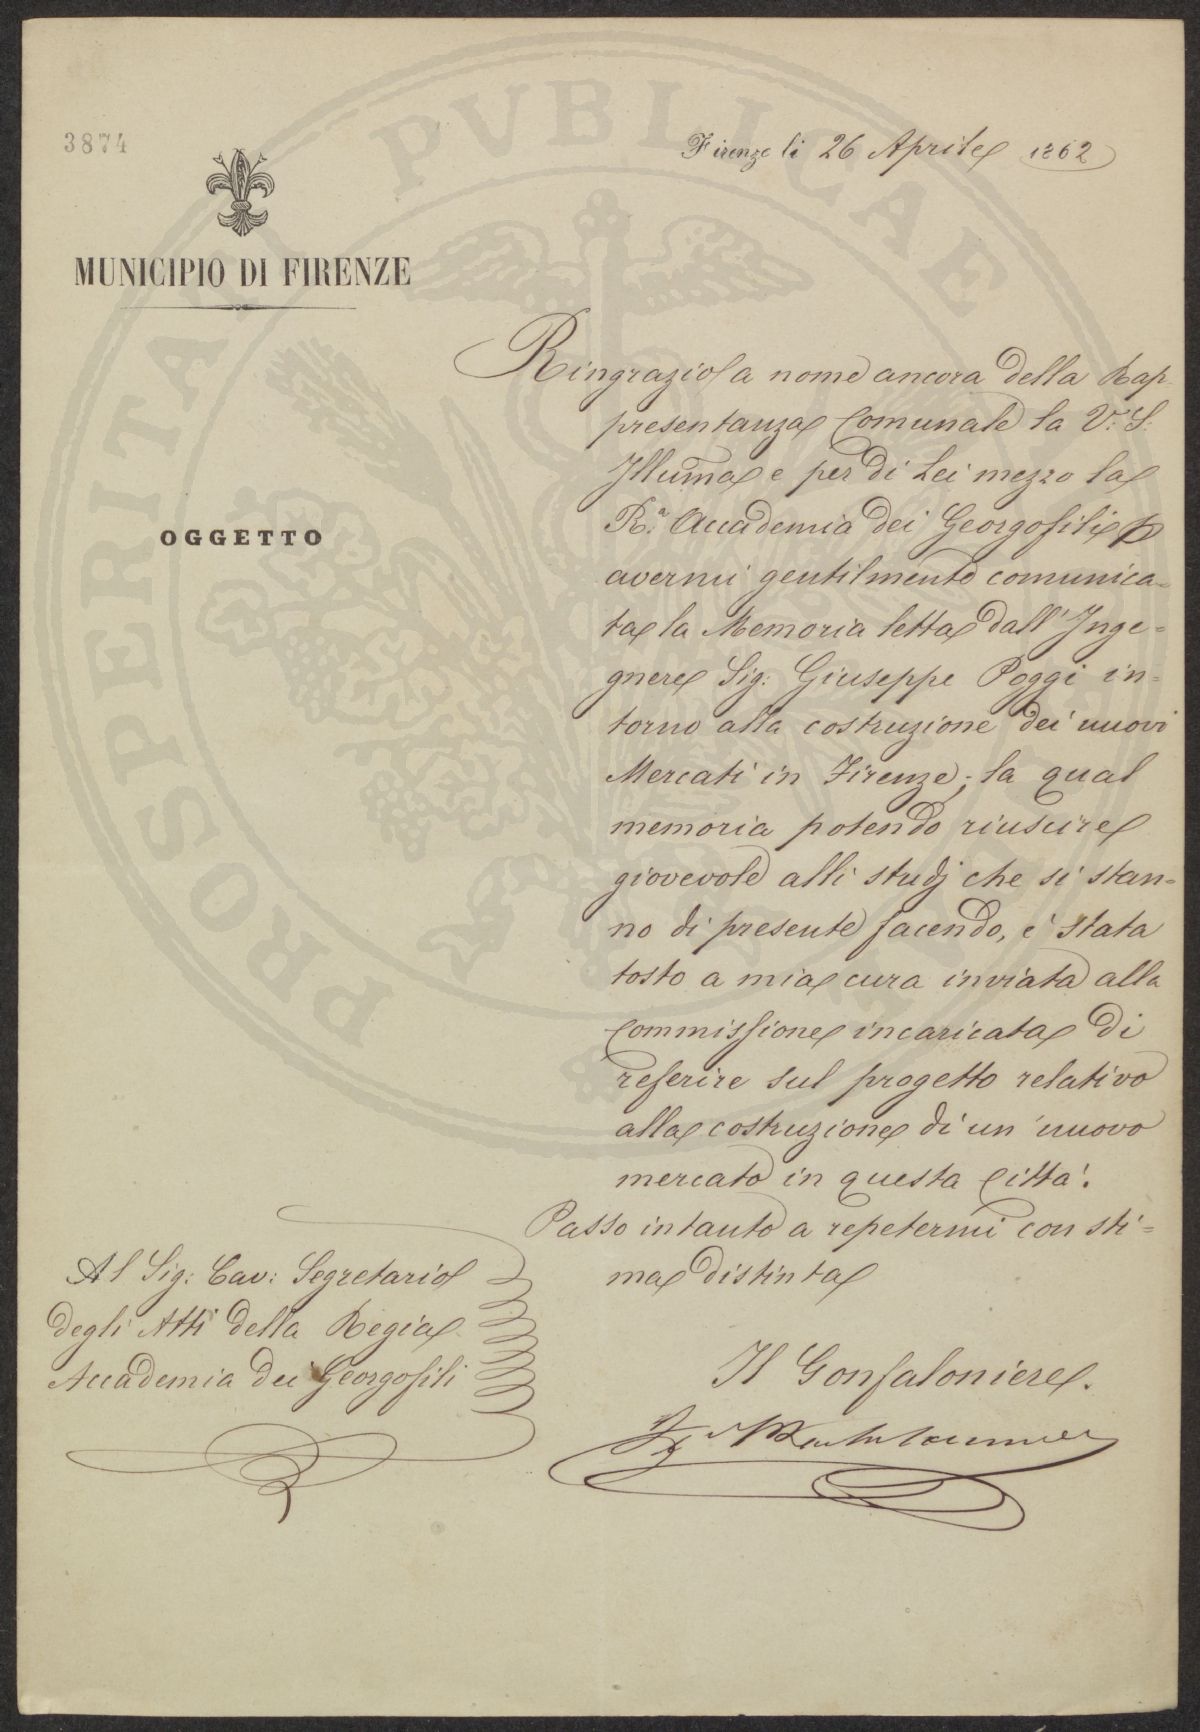 3874
Firenze li 26 Aprile 1862
MUNICIPIO DI FIRENZE
OGGETTO
Ringrazio a nome ancora della Rap-
presentanza Comunale la V: S:
Illuma e per di Lei mezzo la
Ra. Accademia dei Georgofili p
avermi gentilmente comunica=
ta la Memoria letta dall'Inge=
gnere Sig: Giuseppe Poggi in=
torno alla costruzione dei nuovi
Mercati in Firenze; la qual
memoria potendo riuscire
giovevole alli studj che si stan=
no di presente facendo, è stata
tosto a mia cura inviata alla
Commissione incaricata di
referire sul progetto relativo
alla costruzione di un nuovo
mercato in questa Città.
Passo intanto a repetermi con sti=
ma distinta
Il Gonfaloniere.
Al Sig: Cav: Segretario
degli Atti della Regia
Accademia dei Georgofili
PROSPERITATI PUBLICAE